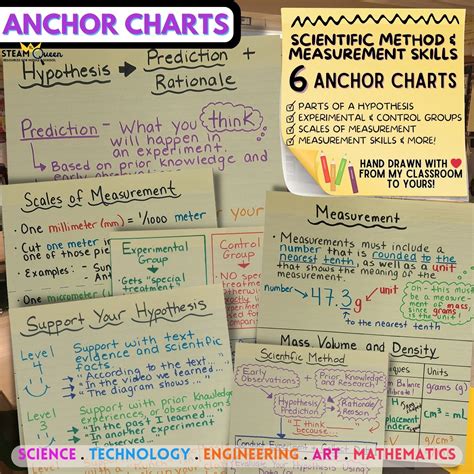 ANCHOR CHARTS
STEAM Queen
Hypothesis → Prediction +
Rationale
Prediction - What you think
will happen in
an experiment.
↳ Based on prior knowledge and
SCIENTIFIC METHOD &
MEASUREMENT SKILLS
6 ANCHOR CHARTS
PARTS OF A HYPOTHESIS
EXPERIMENTAL & CONTROL GROUPS
SCALES OF MEASUREMENT
MEASUREMENT SKILLS & MORE!
HAND DRAWN WITH ❤
FROM MY CLASSROOM
TO YOURS!
Scales of Measurement
One millimeter (mm) = 1/1000 meter
Cut one meter
one of those
Examples: - Sand
One micrometer
your
Experimental
Group
Gets "special
treatment"
Control
Group
NO
Measurement
• Measurements must include a
number that is rounded to the
nearest tenth, as well as a unit
that shows the meaning of the
measurement.
number
47.3g
unit
to the nearest tenth
- this
must be a
measurement
of mass
since grams
is the unit!
Support Your Hypothesis
Level
4
Support with text
evidence and scientific
facts.
"According to the text..."
"In the video we learned..."
"The diagram shows..."
Level
3
Support with prior knowledge
experiences, or observations
"In the past I learned..."
"In another experiment
Scientific Method
Early
Observations
Prior Knowledge
and Research
Hypothesis/
Prediction
Rationale/
Reason
"I think
because
Mass, Volume and Density
Units
grams (g)
cm³ = mL
g/cm³
SCIENCE . TECHNOLOGY . ENGINEERING . ART . MATHEMATICS